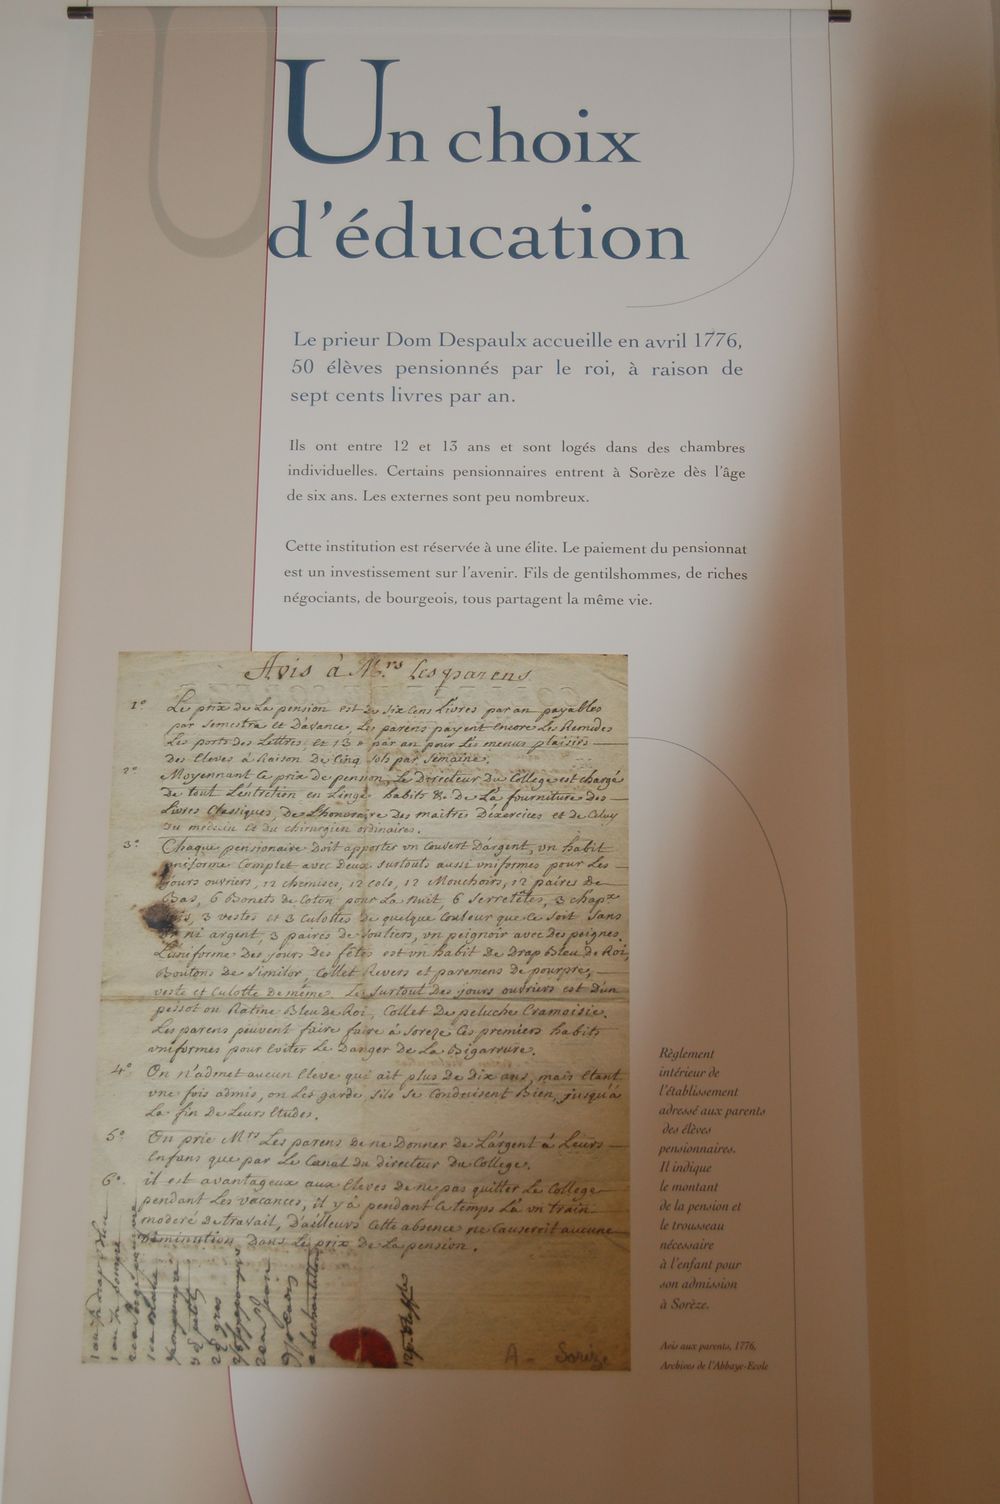 Un choix
d'éducation
Le prieur Dom Despaulx accueille en avril 1776,
50 élèves pensionnés par le roi, à raison de
sept cents livres par an.
Ils ont entre 12 et 13 ans et sont logés dans des chambres
individuelles. Certains pensionnaires entrent à Sorèze dès l'âge
de six ans. Les externes sont peu nombreux.
Cette institution est réservée à une élite. Le paiement du pensionnat
est un investissement sur l'avenir. Fils de gentilshommes, de riches
négociants, de bourgeois, tous partagent la même vie.
Avis à M.rs Les parens
1° Le prix de La pension est de six Cens Livres par an payables
par Semestre et D'avance, Les parens payent encore Les Remedes
Les ports des Lettres, et 13 # par an pour Les menus plaisirs
des Eleves à Raison De Cinq Sols par Semaine.
2° Moyennant Ce prix de pension, Le Directeur Du College est chargé
de tout L'entretien en Linge habits &c. de La fourniture des
Livres Classiques, de L'honoraire des maitres D'exercices et de Celuy
du medecin et du chirurgien ordinaires.
3° Chaque pensionaire Doit apporter un Couvert D'argent, un habit
uniforme Complet avec Deux surtouts aussi uniformes pour Les
jours ouvriers, 12 chemises, 12 Cols, 12 Mouchoirs, 12 paires De
Bas, 6 Bonets de Coton pour La nuit, 6 Serretêtes, 3 chap.x
3 vestes et 3 Culottes de quelque Couleur que Ce Soit Sans
or ni argent, 3 paires de Souliers, un peignoir avec Des peignes.
L'uniforme Des jours Des fêtes est un habit De Drap Bleu de Roi,
Boutons De Similor, Collet Revers et paremens de pourpre,
veste et Culotte De même. Le Surtout Des jours ouvriers est D'un
ou Ratine Bleu De Roi, Collet De peluche Cramoisie.
Les parens peuvent faire faire à Soreze Ces premiers habits
uniformes pour Eviter Le Danger de La Bigarrure.
4° On n'admet aucun Eleve qui ait plus De Dix ans, mais Etant
une fois admis, on Les garde, s'ils Se Conduisent Bien, jusqu'à
La fin De Leurs Etudes.
5° On prie M.rs Les parens De ne Donner De L'argent à Leurs
Enfans que par Le Canal du directeur Du College.
6° il est avantageux aux Eleves De ne pas quitter Le College
pendant Les vacances, il y a pendant Ce temps Là un train
moderé De travail, D'ailleurs Cette absence ne Causeroit aucune
Diminution Dans Le prix De La pension.
A - Sorèze
Règlement
intérieur de
l'établissement
adressé aux parents
des élèves
pensionnaires.
Il indique
le montant
de la pension et
le trousseau
nécessaire
à l'enfant pour
son admission
à Sorèze.
Avis aux parents, 1776,
Archives de l'Abbaye-Ecole